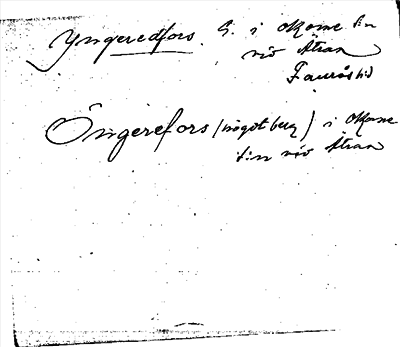 Yngeredfors. G. i Skene s:n
vid Ätran
Faurås hd
Öngerefors (något berg) i Skene
s:n vid Ätran